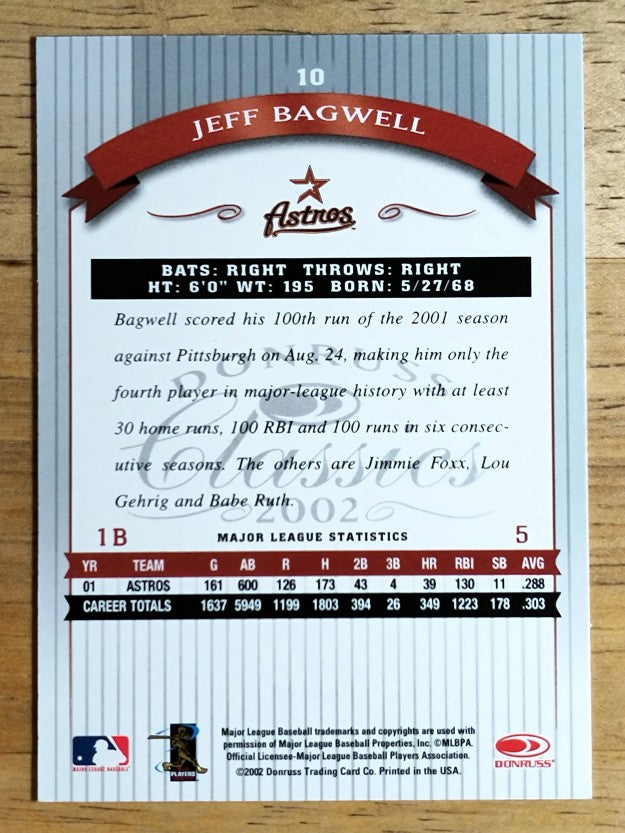 10
JEFF BAGWELL
Astros
BATS: RIGHT THROWS: RIGHT
HT: 6'0" WT: 195 BORN: 5/27/68
Bagwell scored his 100th run of the 2001 season
against Pittsburgh on Aug. 24, making him only the
fourth player in major-league history with at least
30 home runs, 100 RBI and 100 runs in six consec-
utive seasons. The others are Jimmie Foxx, Lou
Gehrig and Babe Ruth.
DONRUSS
Classics
2002
1B MAJOR LEAGUE STATISTICS 5
YR TEAM G AB R H 2B 3B HR RBI SB AVG
01 ASTROS 161 600 126 173 43 4 39 130 11 .288
CAREER TOTALS 1637 5949 1199 1803 394 26 349 1223 178 .303
MAJOR LEAGUE BASEBALL
PLAYERS
Major League Baseball trademarks and copyrights are used with
permission of Major League Baseball Properties, Inc. ©MLBPA.
Official Licensee-Major League Baseball Players Association.
©2002 Donruss Trading Card Co. Printed in the USA.
DONRUSS